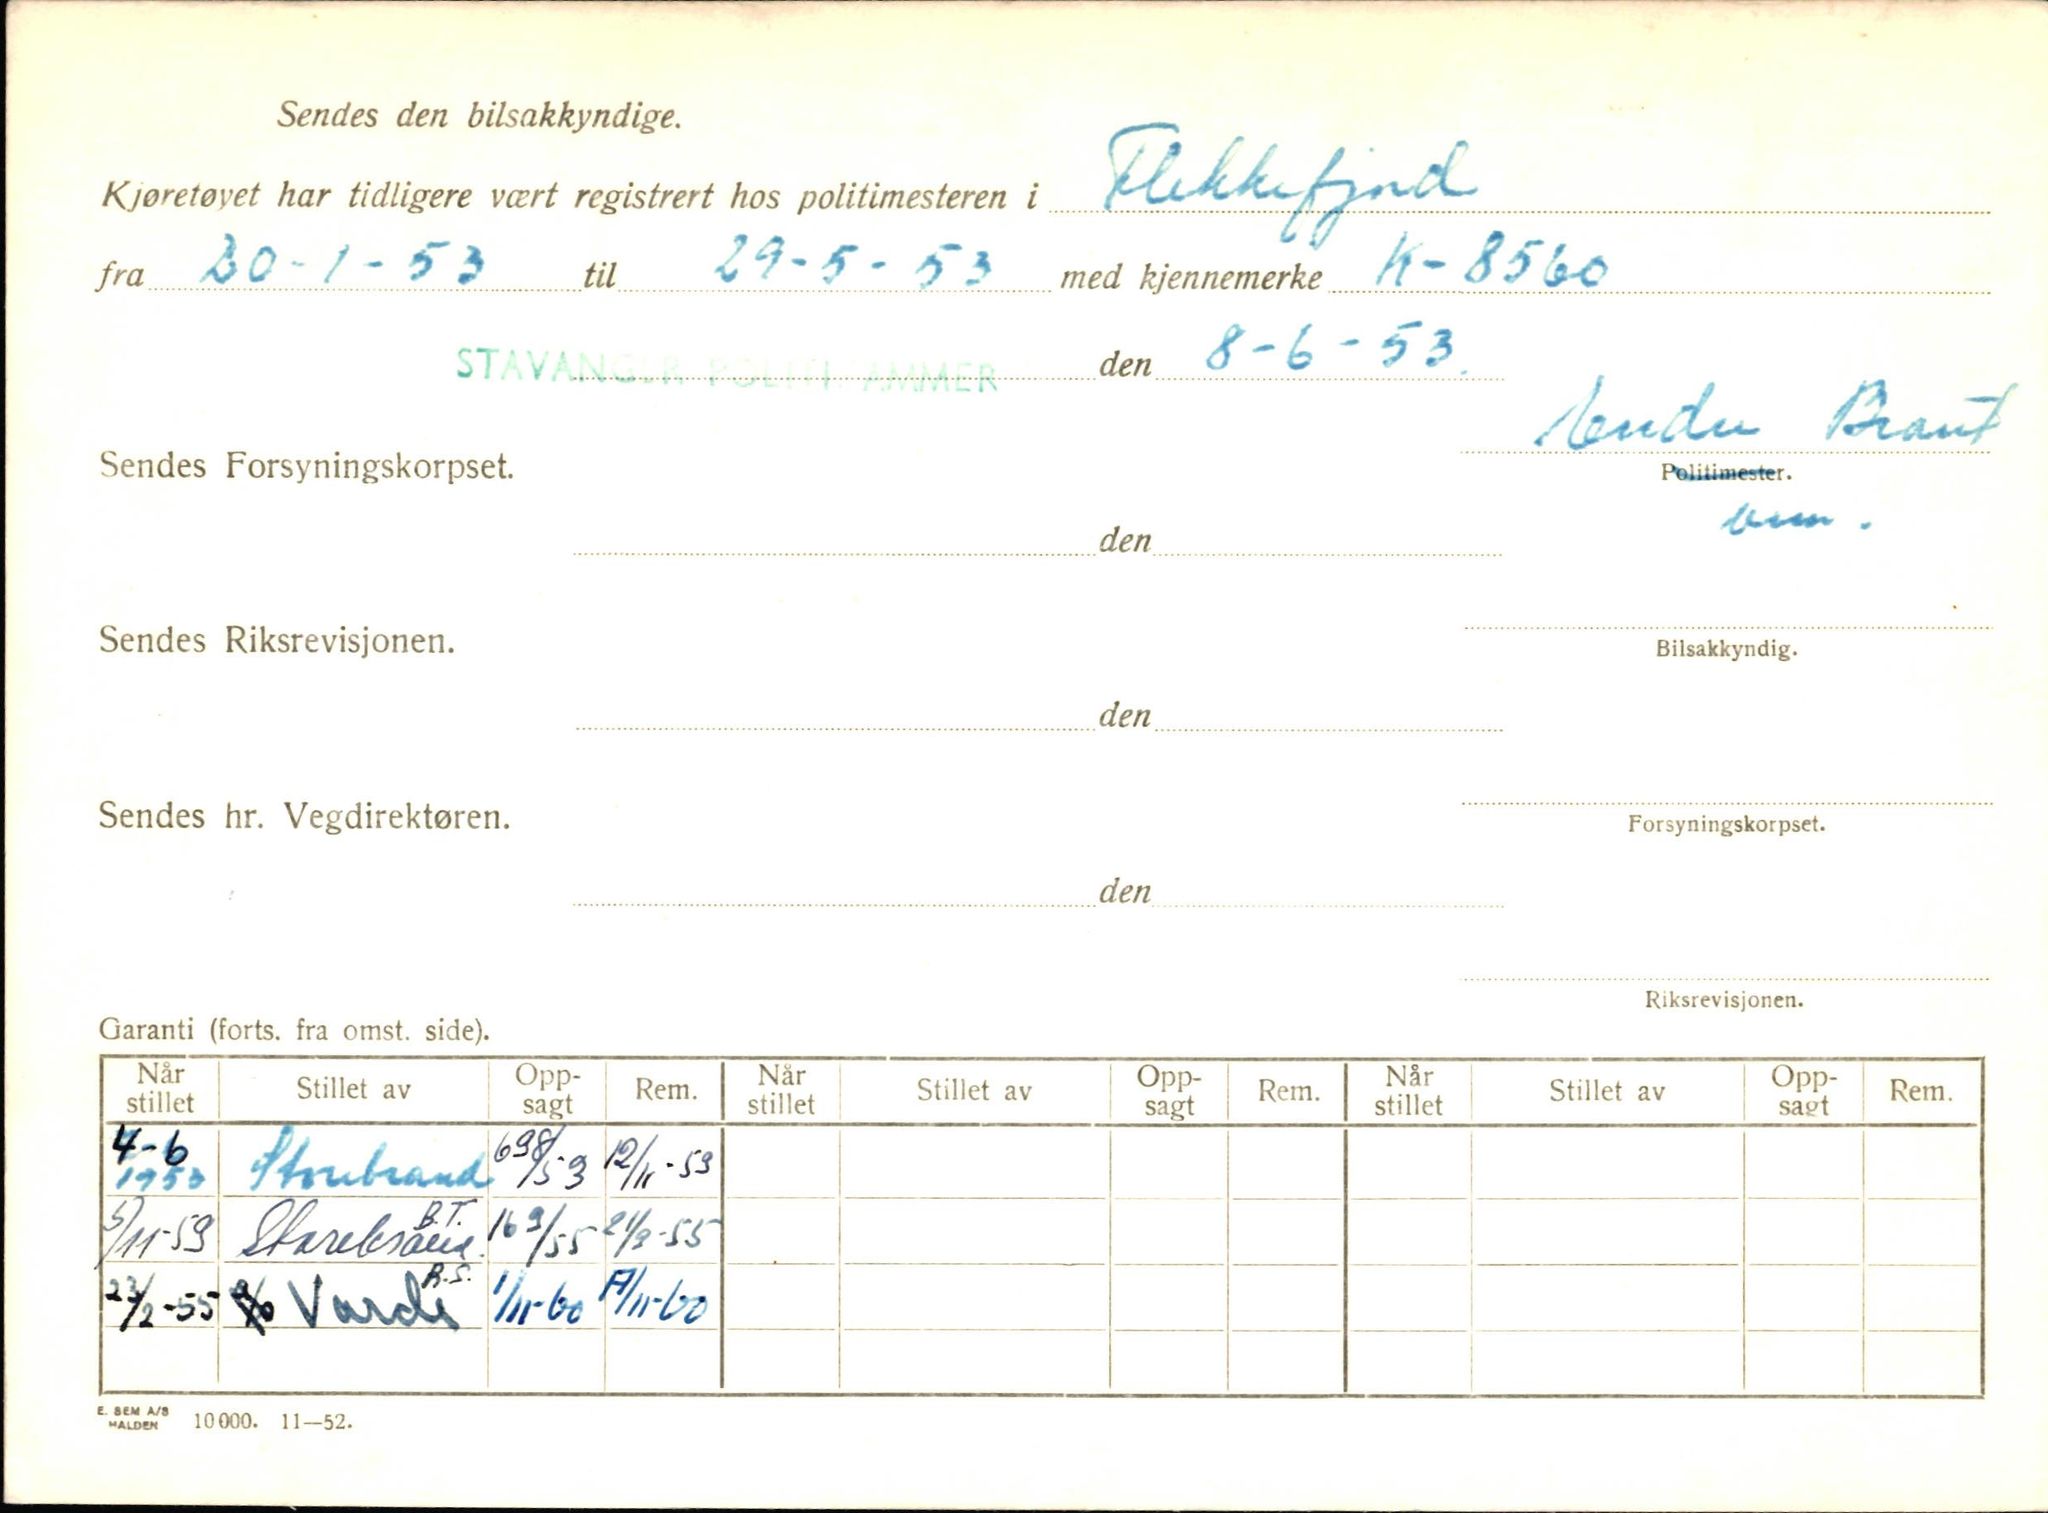 Sendes den bilsakkyndige.
Kjøretøyet har tidligere vært registrert hos politimesteren i Flekkefjord
fra 20-1-53 til 29-5-53 med kjennemerke K-8560
STAVANGER POLITI AMMER den 8-6-53.
Sendes Forsyningskorpset.
Politimester.
den
Sendes Riksrevisjonen.
Bilsakkyndig.
den
Sendes hr. Vegdirektøren.
Forsyningskorpset.
den
Riksrevisjonen.
Garanti (forts. fra omst. side).
Når stillet Stillet av Opp-sagt Rem. Når stillet Stillet av Opp-sagt Rem. Når stillet Stillet av Opp-sagt Rem.
4-6 1953 Storebrand 698/53 12/11-53
5/11-53 Storebrand B.T. 169/55 21/3-55
23/2-55 Vardi R.S. 1/11-60 17/11-60
E. SEM A/S HALDEN 10000. 11—52.